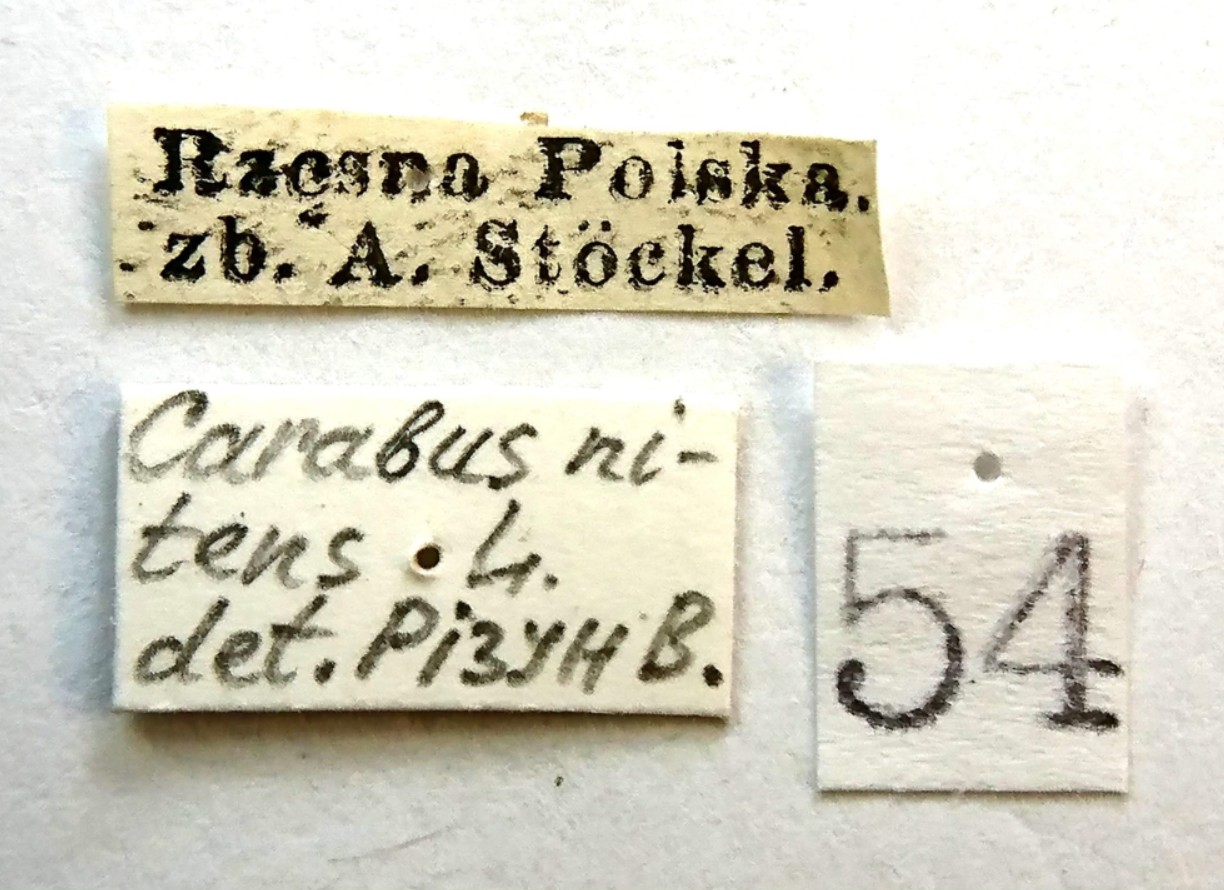 Rzęsna Polska.
zb. A. Stöckel.
Carabus ni-
tens L.
det. Різун В.
54